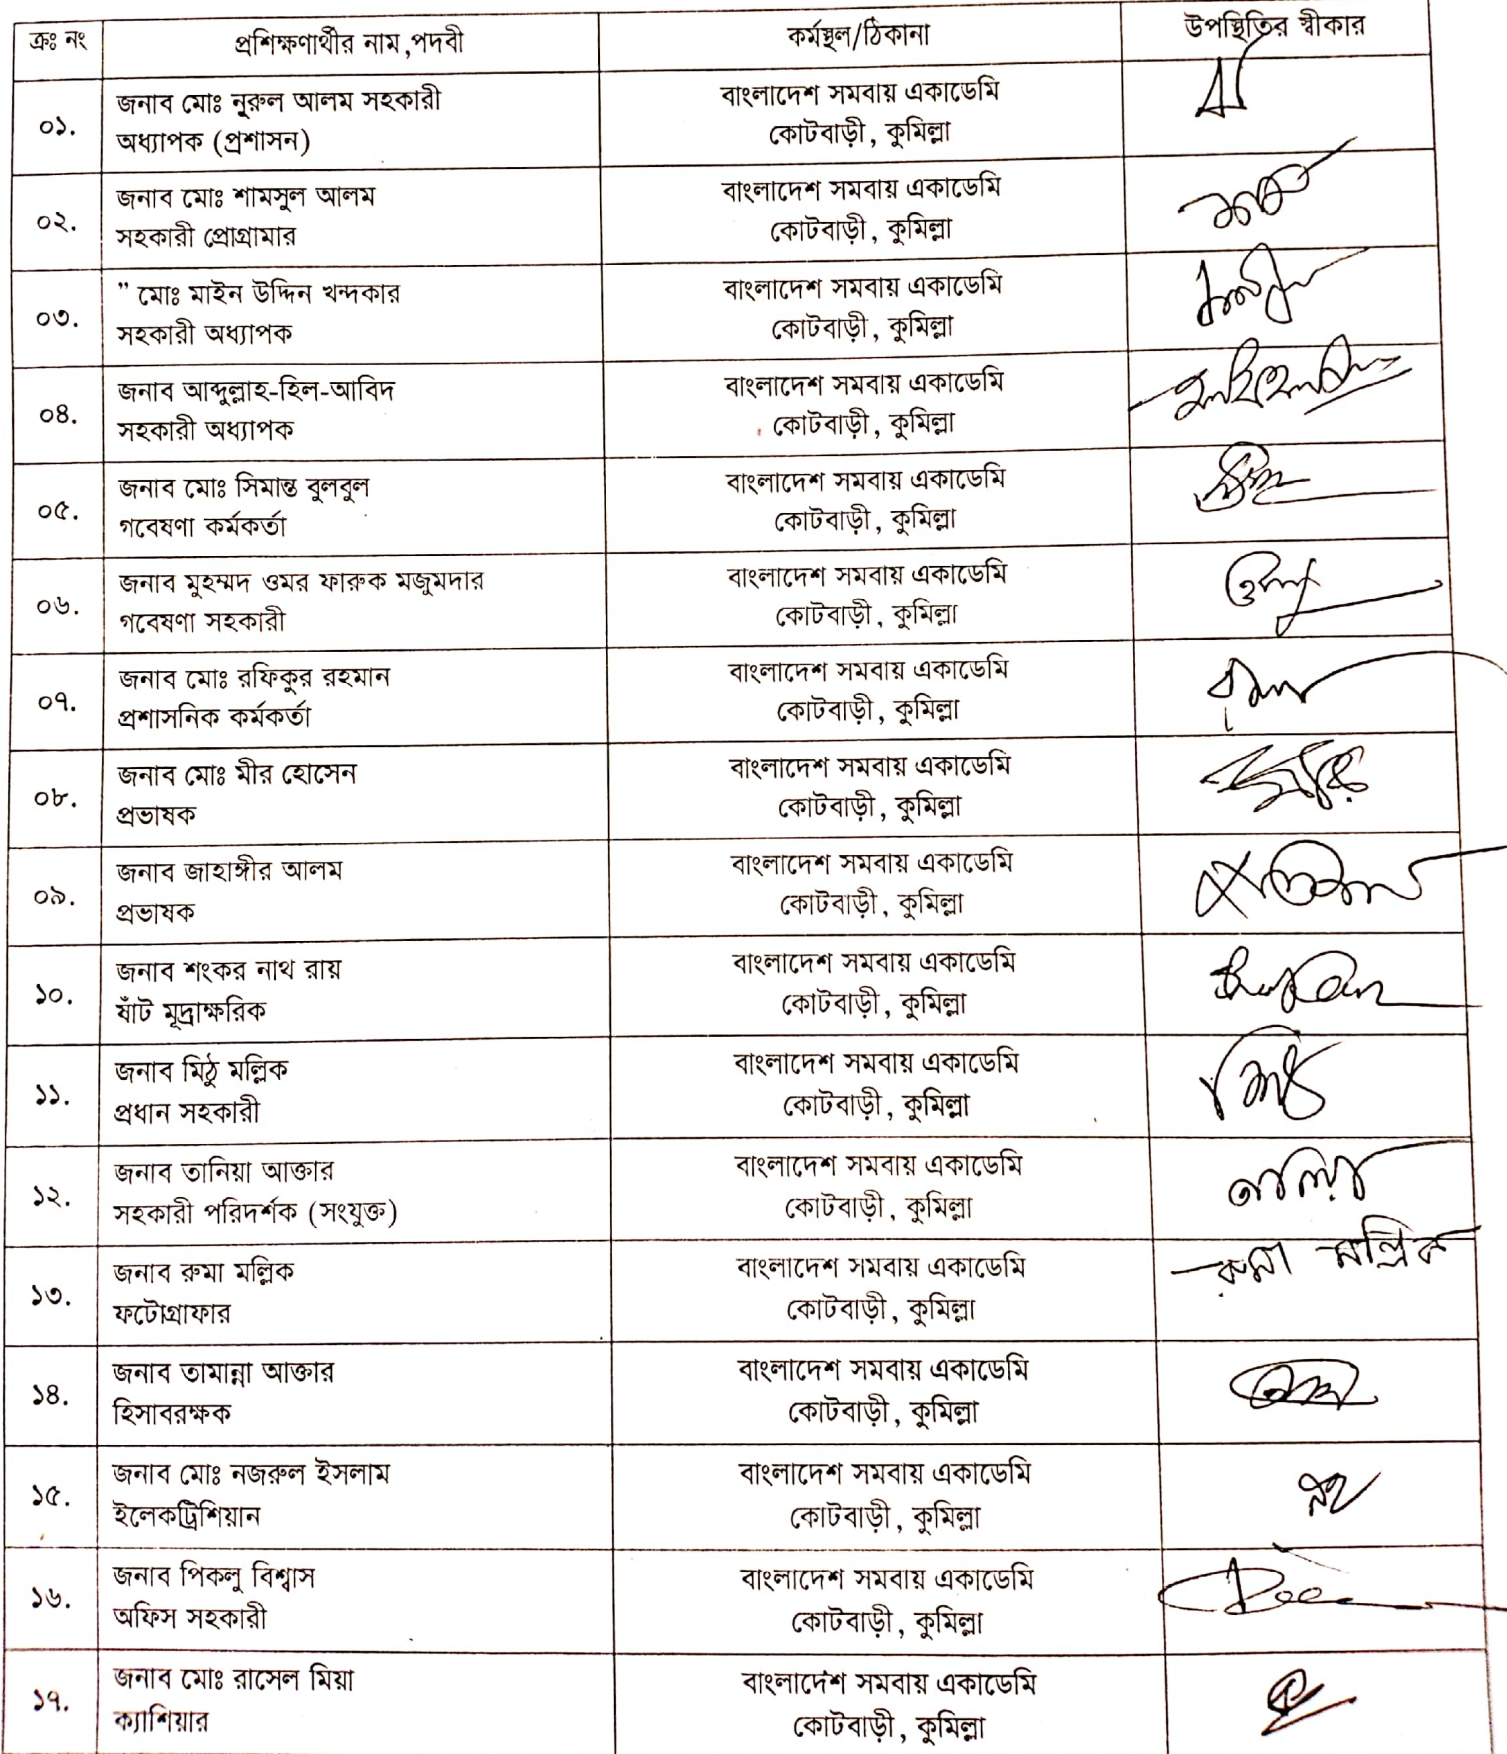 ক্রঃ নং
প্রশিক্ষণার্থীর নাম,পদবী
কর্মস্থল/ঠিকানা
উপস্থিতির স্বীকার
০১.
জনাব মোঃ নুরুল আলম সহকারী
অধ্যাপক (প্রশাসন)
বাংলাদেশ সমবায় একাডেমি
কোটবাড়ী, কুমিল্লা
০২.
জনাব মোঃ শামসুল আলম
সহকারী প্রোগ্রামার
বাংলাদেশ সমবায় একাডেমি
কোটবাড়ী, কুমিল্লা
০৩.
” মোঃ মাইন উদ্দিন খন্দকার
সহকারী অধ্যাপক
বাংলাদেশ সমবায় একাডেমি
কোটবাড়ী, কুমিল্লা
০৪.
জনাব আব্দুল্লাহ-হিল-আবিদ
সহকারী অধ্যাপক
বাংলাদেশ সমবায় একাডেমি
কোটবাড়ী, কুমিল্লা
০৫.
জনাব মোঃ সিমান্ত বুলবুল
গবেষণা কর্মকর্তা
বাংলাদেশ সমবায় একাডেমি
কোটবাড়ী, কুমিল্লা
০৬.
জনাব মুহম্মদ ওমর ফারুক মজুমদার
গবেষণা সহকারী
বাংলাদেশ সমবায় একাডেমি
কোটবাড়ী, কুমিল্লা
০৭.
জনাব মোঃ রফিকুর রহমান
প্রশাসনিক কর্মকর্তা
বাংলাদেশ সমবায় একাডেমি
কোটবাড়ী, কুমিল্লা
০৮.
জনাব মোঃ মীর হোসেন
প্রভাষক
বাংলাদেশ সমবায় একাডেমি
কোটবাড়ী, কুমিল্লা
০৯.
জনাব জাহাঙ্গীর আলম
প্রভাষক
বাংলাদেশ সমবায় একাডেমি
কোটবাড়ী, কুমিল্লা
১০.
জনাব শংকর নাথ রায়
ষাঁট মূদ্রাক্ষরিক
বাংলাদেশ সমবায় একাডেমি
কোটবাড়ী, কুমিল্লা
১১.
জনাব মিঠু মল্লিক
প্রধান সহকারী
বাংলাদেশ সমবায় একাডেমি
কোটবাড়ী, কুমিল্লা
১২.
জনাব তানিয়া আক্তার
সহকারী পরিদর্শক (সংযুক্ত)
বাংলাদেশ সমবায় একাডেমি
কোটবাড়ী, কুমিল্লা
১৩.
জনাব রুমা মল্লিক
ফটোগ্রাফার
বাংলাদেশ সমবায় একাডেমি
কোটবাড়ী, কুমিল্লা
রুমা মল্লিক
১৪.
জনাব তামান্না আক্তার
হিসাবরক্ষক
বাংলাদেশ সমবায় একাডেমি
কোটবাড়ী, কুমিল্লা
১৫.
জনাব মোঃ নজরুল ইসলাম
ইলেকট্রিশিয়ান
বাংলাদেশ সমবায় একাডেমি
কোটবাড়ী, কুমিল্লা
১৬.
জনাব পিকলু বিশ্বাস
অফিস সহকারী
বাংলাদেশ সমবায় একাডেমি
কোটবাড়ী, কুমিল্লা
১৭.
জনাব মোঃ রাসেল মিয়া
ক্যাশিয়ার
বাংলাদেশ সমবায় একাডেমি
কোটবাড়ী, কুমিল্লা